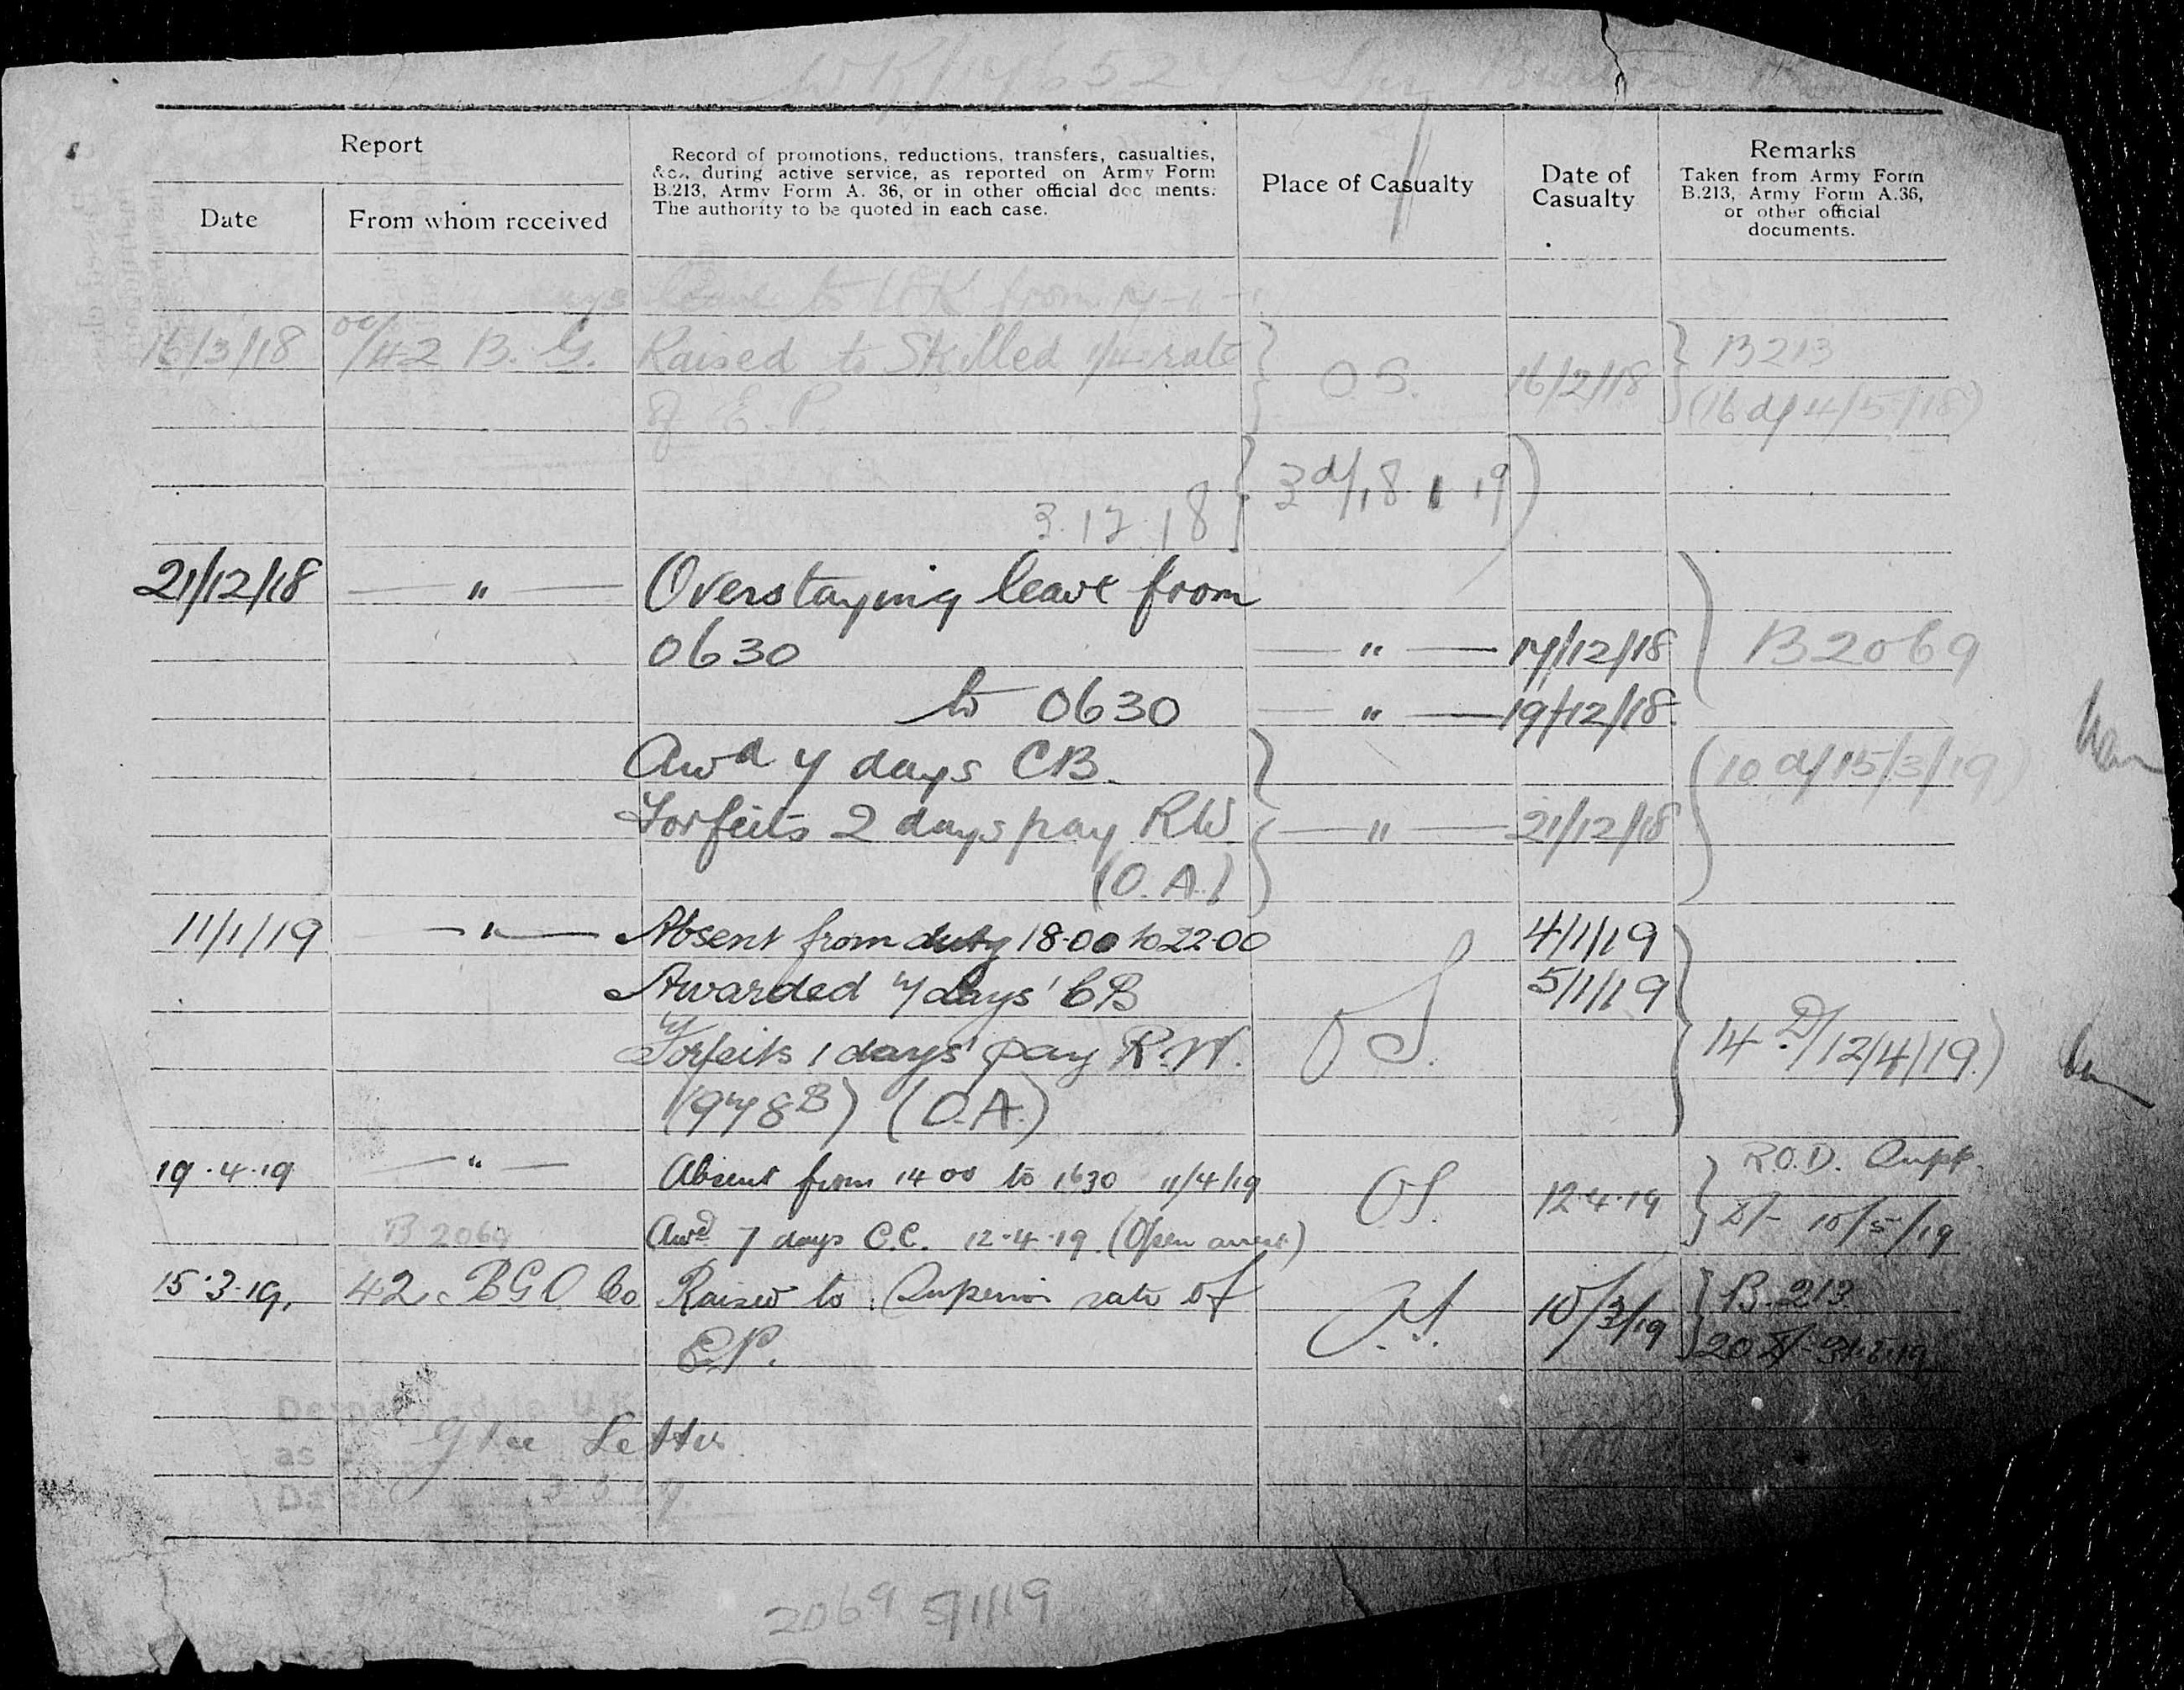 Report
Date
From whom received
Record of promotions, reductions, transfers, casualties,
&c., during active service, as reported on Army Form
B.213, Army Form A. 36, or in other official doc ments.
The authority to be quoted in each case.
Place of Casualty
Date of
Casualty
Remarks
Taken from Army Form
B.213, Army Form A.36,
or other official
documents.
leave to UK from
16/3/18 oc/42 B. G. Raised to Skilled rate O S. 16/2/18 B 213
of E. P. (16 d/ 4/5/18)
3 d/18 1 19)
3.12.18
21/12/18 — " — Overstaying leave from
0630 — " — 17/12/18 B 2069
to 0630 — " — 19/12/18
Awd 7 days CB.
(10 d/ 15/3/19)
Forfeits 2 days pay RW — " — 21/12/18
(O.A.)
11/1/19 — " — Absent from duty 18.00 to 22.00 4/1/19
Awarded 7 days' CB 5/1/19
Forfeits 1 days' pay R.W. OS. 14 D/12/4/19)
(1978B) (O.A.)
19.4.19 — " — Absent from 14 00 to 1630 11/4/19 OS. 12.4.19 R.O.D. Supp.
B 2069 Awd 7 days C.C. 12.4.19. (Open arrest) D/- 10/5/19
15.3.19. 42. BGO Co Raised to Superior rate of OS. 10/3/19 B.213
E.P. 20 D/-
Letter
2069 5/1/19